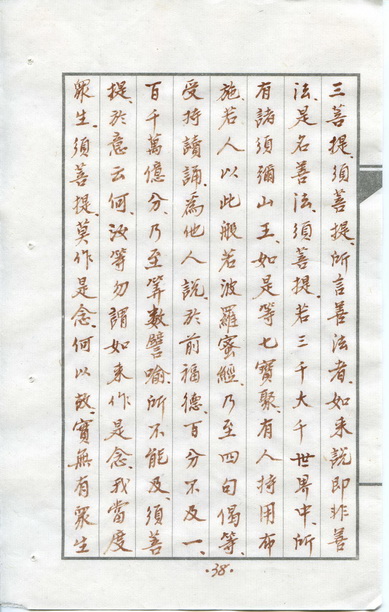 三菩提、須菩提、所言善法者、如来説即非善
法、是名善法、須菩提、若三千大千世界中、所
有諸須彌山王、如是等七寶聚、有人持用布
施、若人以此般若波羅蜜經、乃至四句偈等、
受持讀誦、為他人説、於前福德、百分不及一、
百千萬億分、乃至筭數譬喻、所不能及、須菩
提、於意云何、汝等勿謂如来作是念、我當度
眾生、須菩提、莫作是念、何以故、實無有眾生
·38·